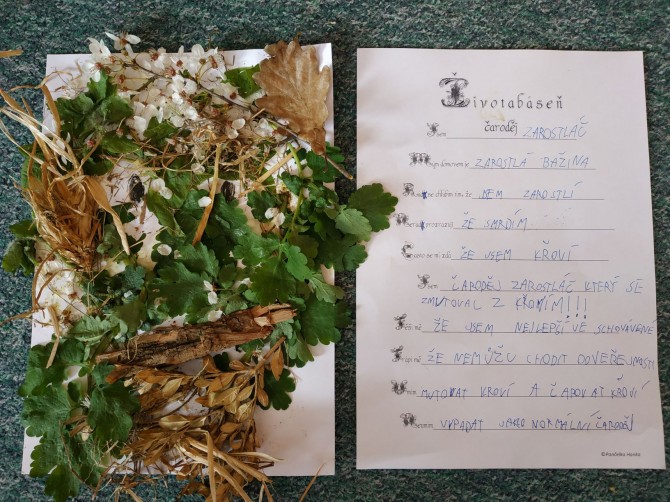 Životabáseň
Jsem čaroděj ZAROSTLÁČ
Mým domovem je ZAROSTLÁ BAŽINA
se chlubím tím, že JSEM ZAROSTLÍ
ŽE SMRDÍM
Často se mi zdá ŽE JSEM KŘOVÍ
Jsem ČARODĚJ ZAROSTLÁČ KTERÝ SE
ZMUTOVAL Z KŘOVÍM!!!
Těší mě ŽE JSEM NEJLEPČÍ VE SCHOVÁVÉNÉ
Trápí mě ŽE NEMŮŽU CHODIT DO VEŘEJNOSTI
Umím MUTOVAT KROVÍ A ČAROVAT KŘOVÍ
Neumím VYPADAT JAKO NORMÁLNÍ ČARODĚJ